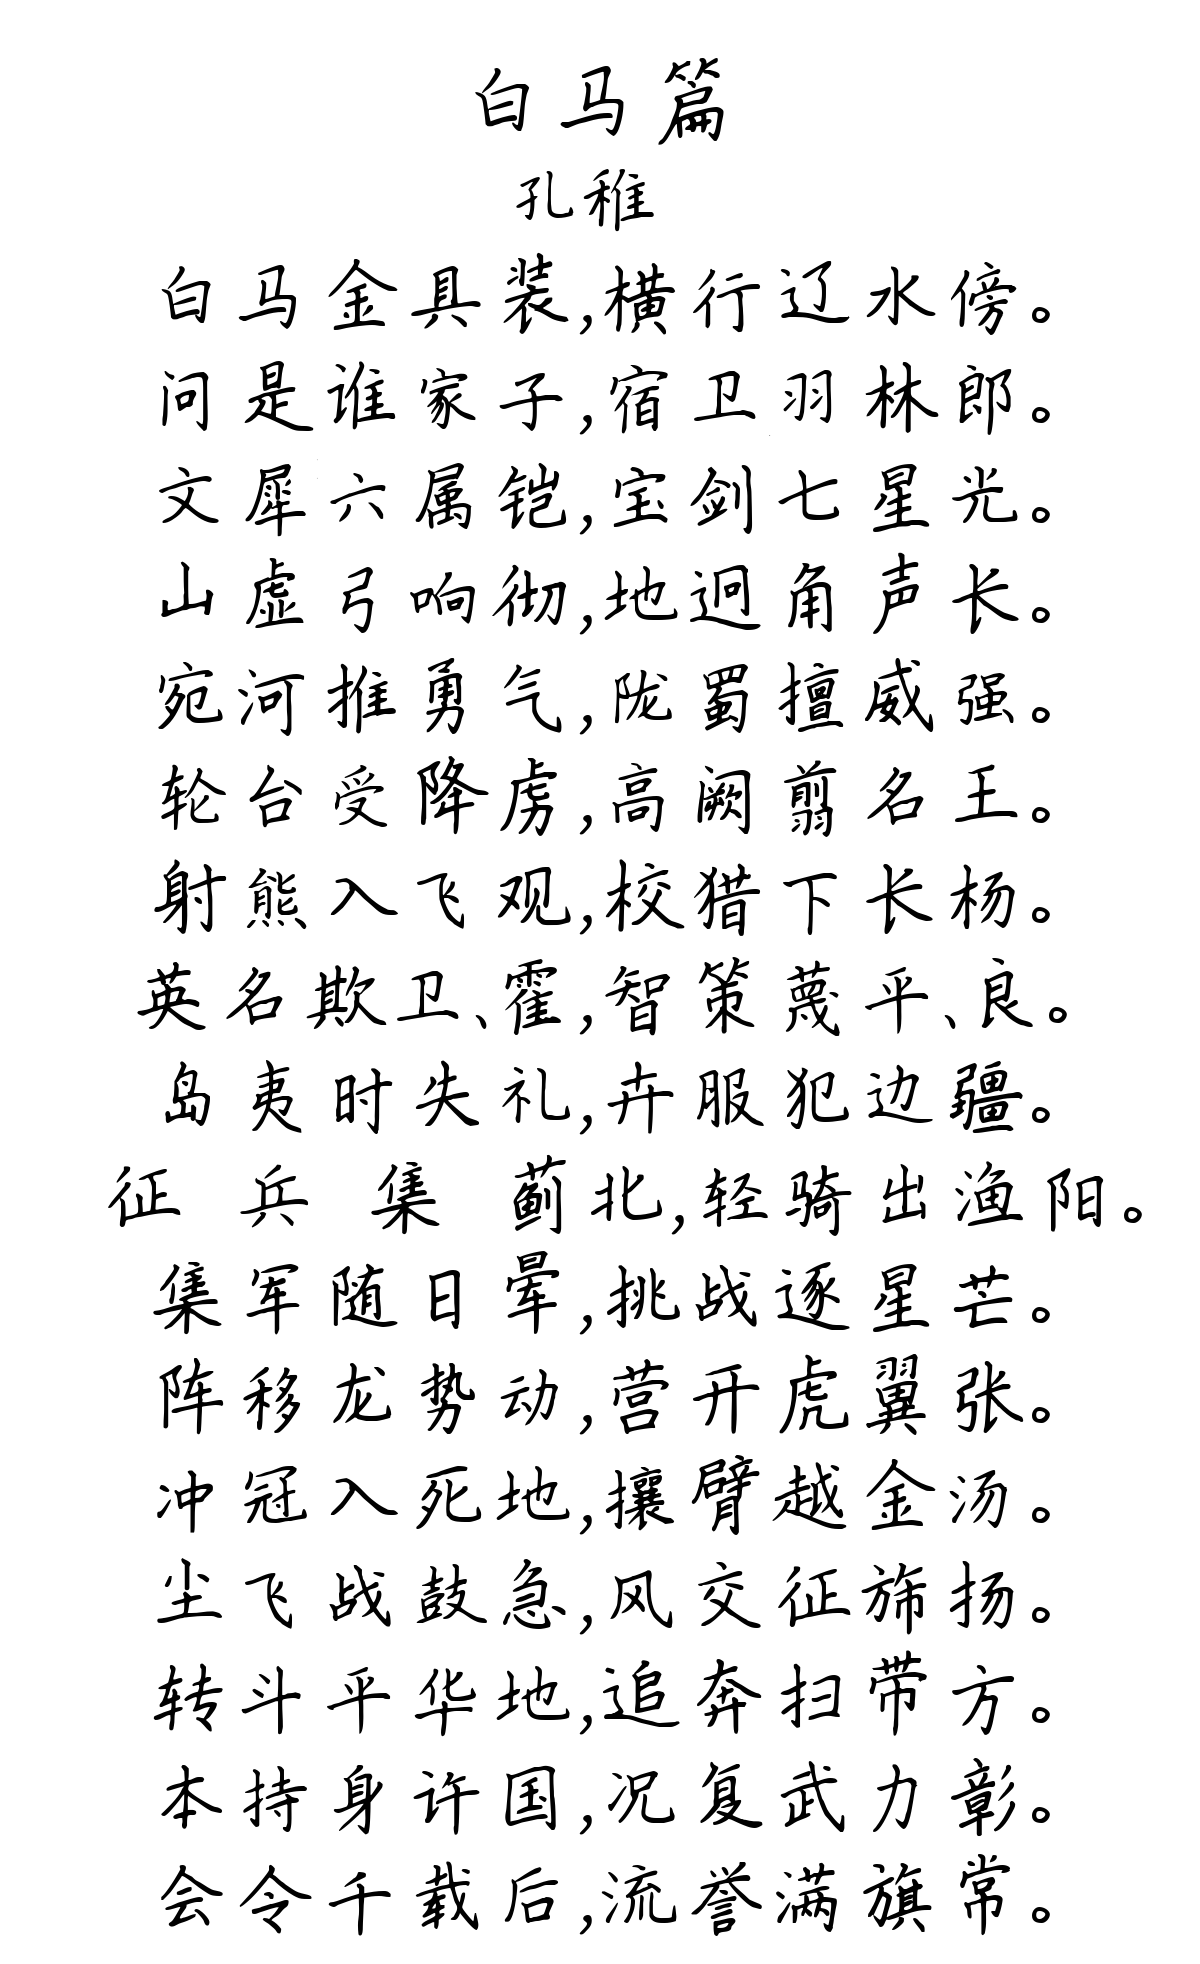 白马篇
孔稚
白马金具装,横行辽水傍。
问是谁家子,宿卫羽林郎。
文犀六属铠,宝剑七星光。
山虚弓响彻,地迥角声长。
宛河推勇气,陇蜀擅威强。
轮台受降虏,高阙翦名王。
射熊入飞观,校猎下长杨。
英名欺卫、霍,智策蔑平、良。
岛夷时失礼,卉服犯边疆。
征兵集蓟北,轻骑出渔阳。
集军随日晕,挑战逐星芒。
阵移龙势动,营开虎翼张。
冲冠入死地,攘臂越金汤。
尘飞战鼓急,风交征旆扬。
转斗平华地,追奔扫带方。
本持身许国,况复武力彰。
会令千载后,流誉满旗常。